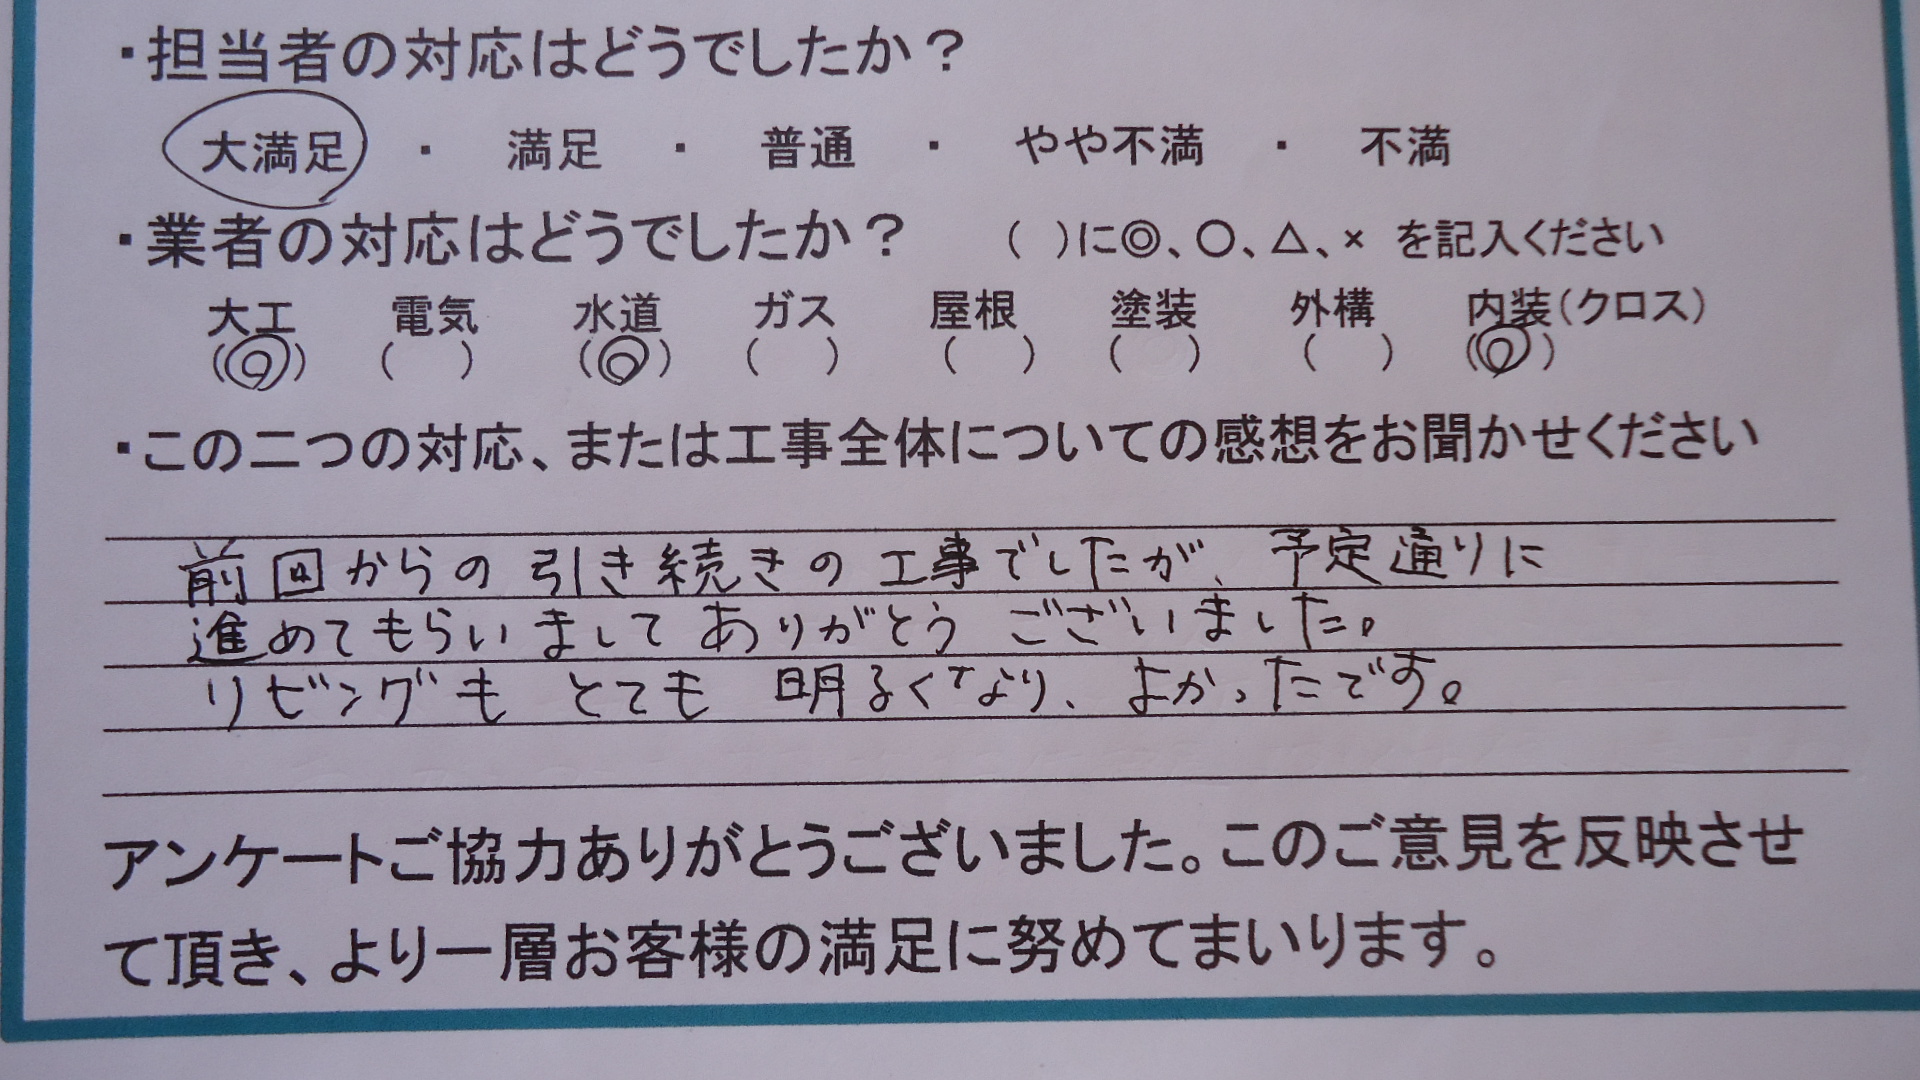 ・担当者の対応はどうでしたか？
大満足 ・ 満足 ・ 普通 ・ やや不満 ・ 不満
・業者の対応はどうでしたか？ （ ）に◎、〇、△、× を記入ください
大工 電気 水道 ガス 屋根 塗装 外構 内装（クロス）
（◎） （ ） （◎） （ ） （ ） （ ） （ ） （◎）
・この二つの対応、または工事全体についての感想をお聞かせください
前回からの引き続きの工事でしたが、予定通りに
進めてもらいましてありがとうございました。
リビングもとても明るくなり、よかったです。
アンケートご協力ありがとうございました。このご意見を反映させ
て頂き、より一層お客様の満足に努めてまいります。